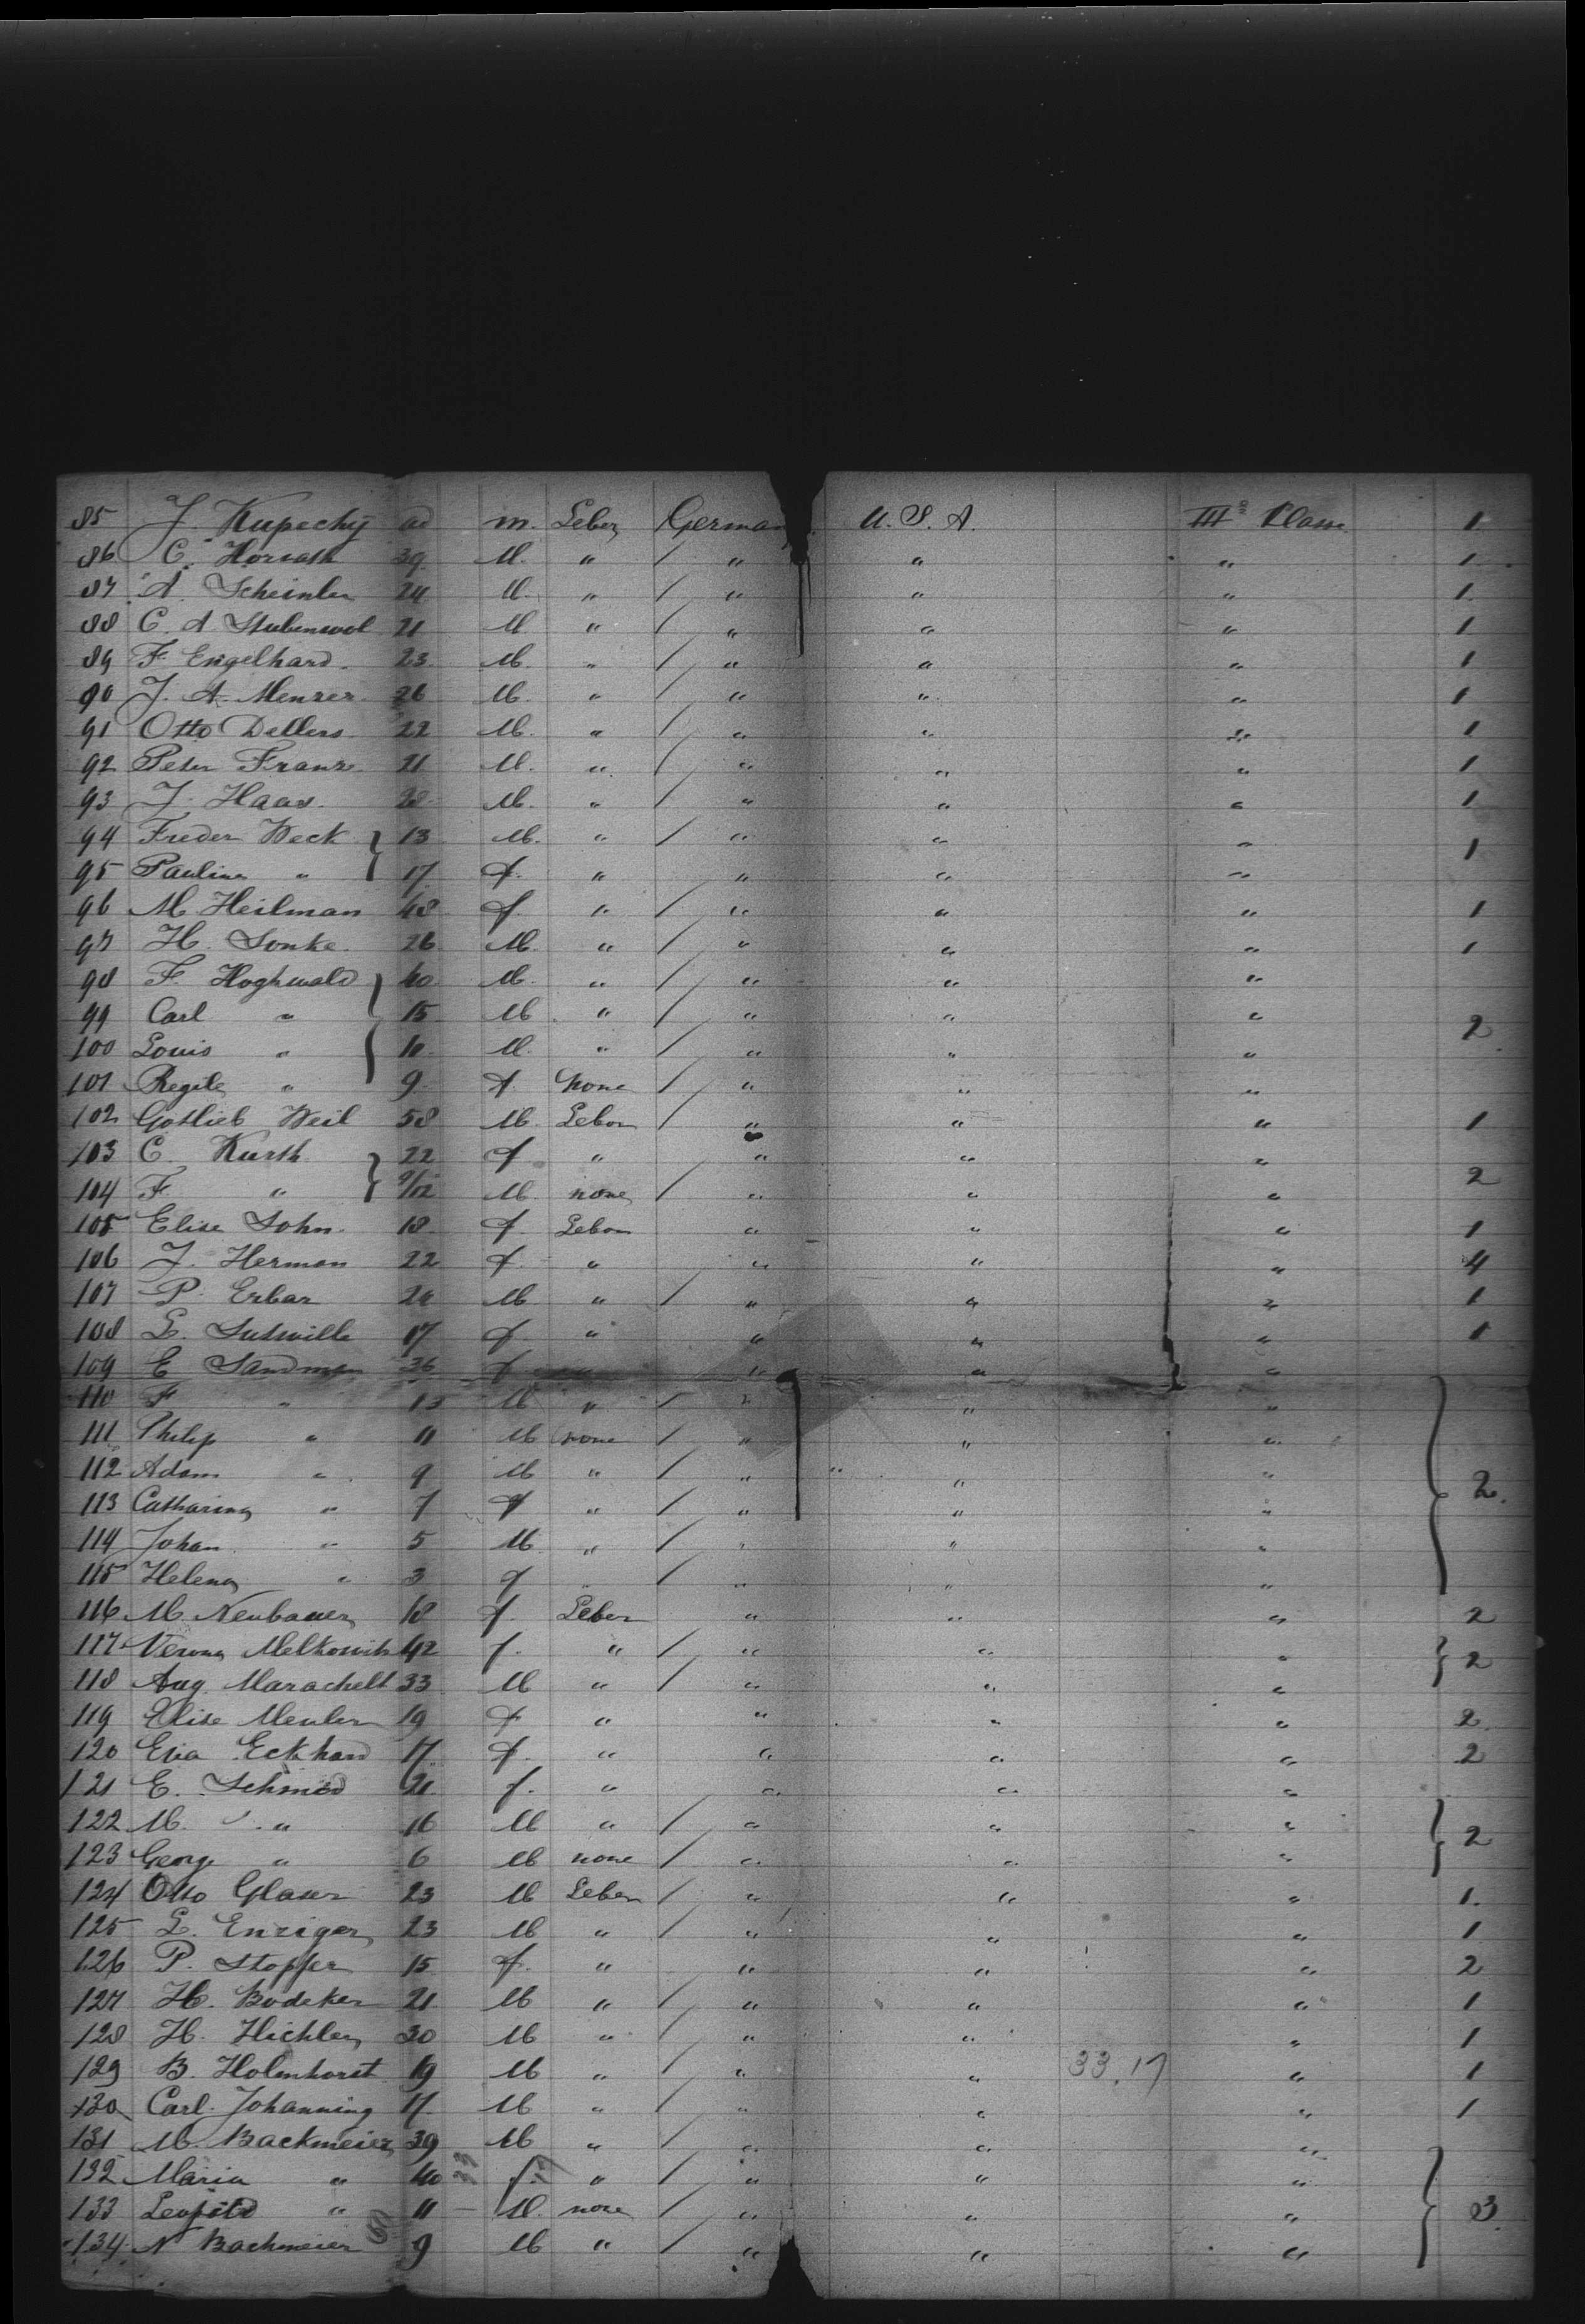 85 J. Kupechy ad m. Leber German U.S.A. IIIe Klasse 1
86 C. Horvath 39 M. " / " " " 1
87 A. Scheinler 24 M. " / " " " 1
88 C. A. Stubenvol 21 M " / " " " 1
89 F. Engelhard. 23 M. " / " " " 1
90 J. A. Menzer 26 M. " / " " " 1
91 Otto Dellers 22 M. " / " " " 1
92 Peter Franz 21 M. " / " " " 1
93 J. Haas. 28 M. " / " " " 1
94 Freder Weck } 13 M. " / " " " 1
95 Paulina " 17 f. " " " "
96 M Heilman 48 f. " / " " " 1
97 H. Sonke. 26 M. " / " " " 1
98 F. Hoghwald } 40 M. " / " " "
99 Carl " 15 M. " / " " " 2
100 Louis " 10 M. " / " " "
101 " 9 f. none / " " "
102 Gotlieb Weil 58 M. Lebor / " " " 1
103 C. Kurth } 22 f " " " "
104 F. " 9/12 M. none / " " " 2
105 Elise Sohn. 18 f. Lebor " " " 1
106 J. Herman 22 f. " " " " 4
107 P. Erbar 24 M " / " " " 1
108 L. Sutwille 17 f. " " " " 1
109 E Sandman 36 f " " " "
110 F " 13 M " / " " "
111 Philip " 11 M none / " " "
112 Adam " 9 M " / " " " } 2.
113 Catharina " 7 f " / " " "
114 Johan " 5 M. " / " " "
115 Helena " 3 f " / " " "
116 M. Neubauer 18 f. Leber " " " 2
117 Verona Melkowitz 42 f. " / " " " } 2
118 Aug. Marachelt 33 M " / " " "
119 Elise Menler 19 f " " " " 2
120 Eva Eckhard 17 f. " " " " 2
121 E. Schmid 21 f. " " " "
122 M. " 16 M " / " " " } 2
123 George " 6 M none / " " "
124 Otto Glaser 23 M Leber / " " " 1.
125 L. Enziger 23 M " / " " " 1
126 P. Stopfer 15 f. " " " " 2
127 H. Bodeker 21 M " / " " " 1
128 H. Hichler 30 M " / " " " 1
129 B. Holmhorst 19 M " / " " 33.17 " 1
130 Carl Johanning 17 M " / " " " 1
131 M. Backmeier 39 M " / " " "
132 Maria " 40 f. " / " " " } 3
133 Leopold " 11 M. none / " " "
134 N Backmeier 9 M " / " " "